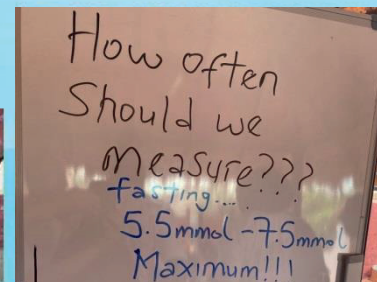 How often
Should we
measure???
fasting...
5.5mmol-7.5mmol
Maximum!!!